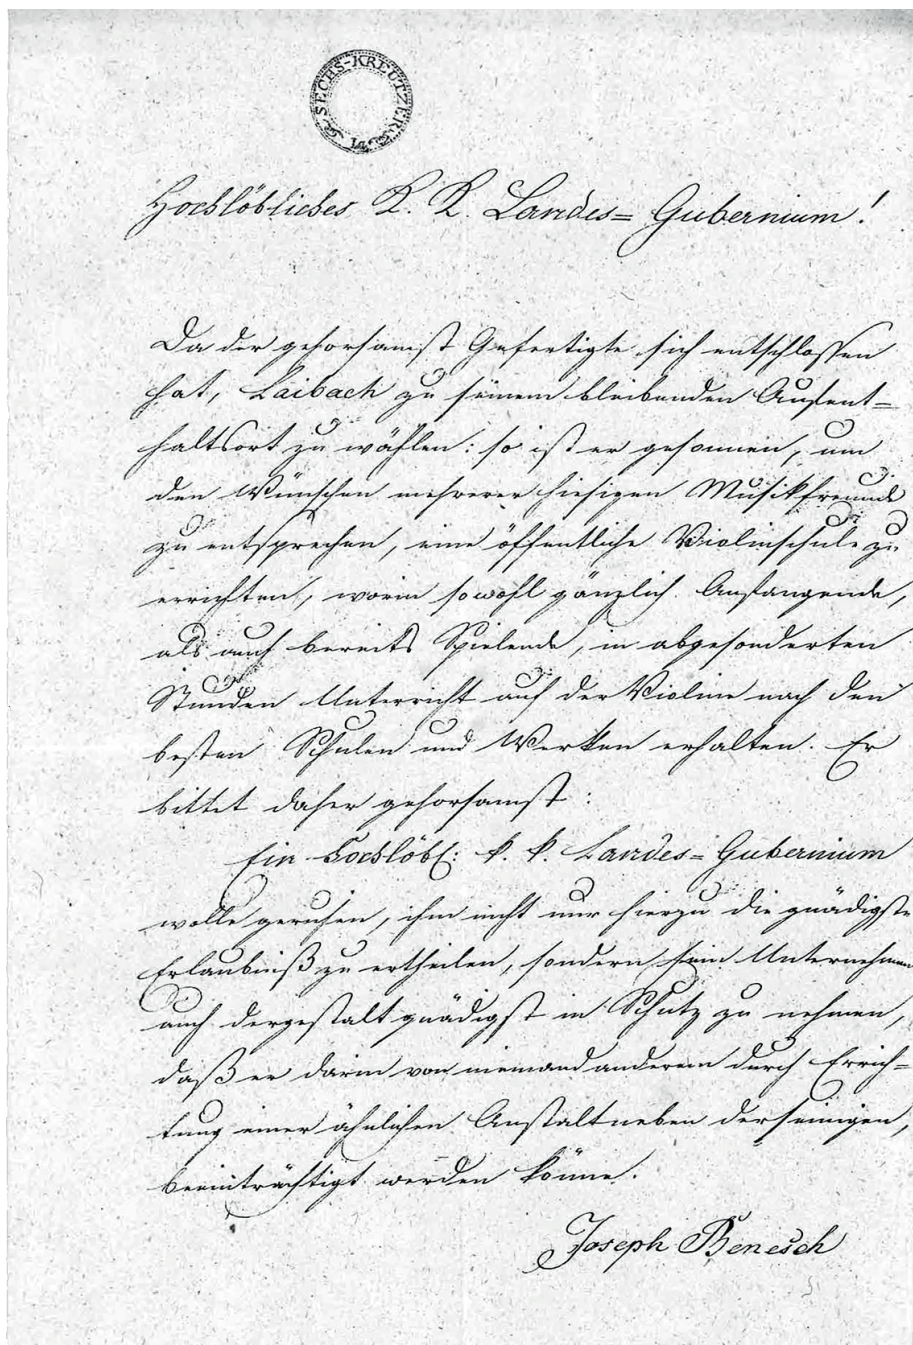 SECHS-KREUTZER
Hochlöbliches K. K. Landes= Gubernium!
Da der gehorsamst Gefertigte sich entschlossen
hat, Laibach zu seinem bleibenden Aufent=
haltsort zu wählen: so ist er gesonnen, um
den Wünschen mehrerer hiesigen Musikfreunde
zu entsprechen, eine öffentliche Violinschule zu
errichten, worin sowohl gänzlich Anfangende,
als auch bereits Spielende, in abgesonderten
Stunden Unterricht auf der Violine nach den
besten Schulen und Werken erhalten. Er
bittet daher gehorsamst:
Ein Hochlöbl: k. k. Landes= Gubernium
wolle geruhen, ihm nicht nur hierzu die gnädigste
Erlaubniß zu ertheilen, sondern sein Unternehmen
auch dergestalt gnädigst in Schutz zu nehmen,
daß er darin von niemand anderem durch Errich=
tung einer ähnlichen Anstalt neben der seinigen,
beeinträchtigt werden könne.
Joseph Benesch